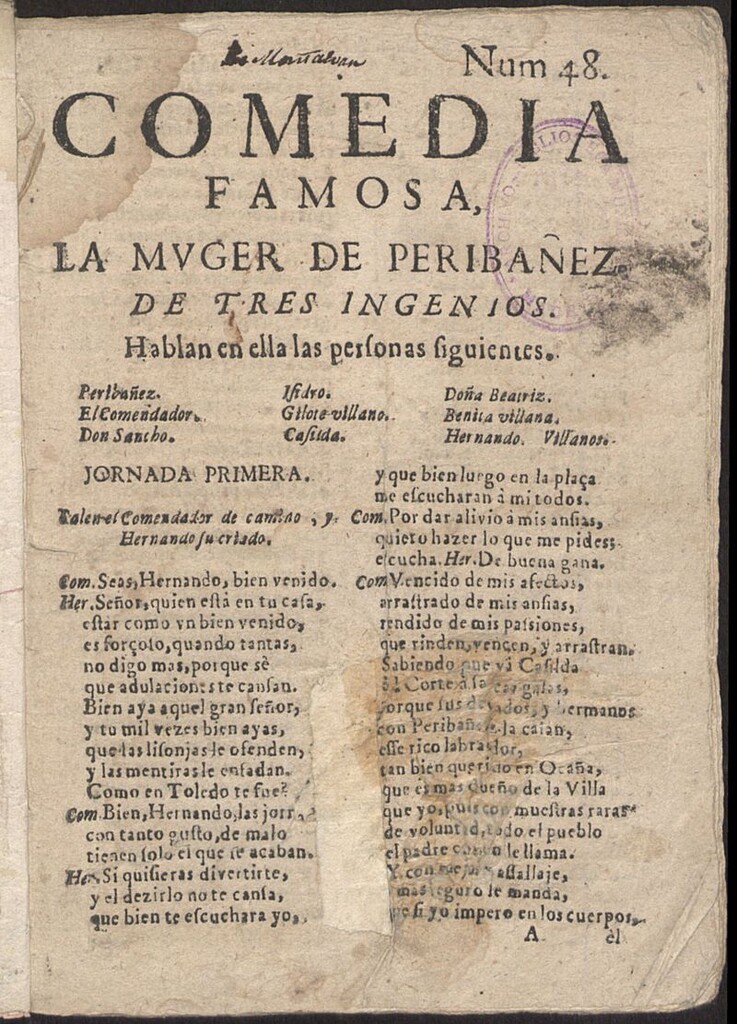 de Montalvan
Num 48.
COMEDIA
FAMOSA,
LA MVGER DE PERIBAÑEZ.
DE TRES INGENIOS.
Hablan en ella las perſonas ſiguientes.
Peribañez. Iſidro. Doña Beatriz.
El Comendador. Gilote villano. Benita villana.
Don Sancho. Caſilda. Hernando. Villanos.
JORNADA PRIMERA.
Salen el Comendador de camino, y
Hernando ſu criado.
Com. Seas, Hernando, bien venido.
Her. Señor, quien eſtà en tu caſa,
eſtar como vn bien venido,
es forçoſo, quando tantas,
no digo mas, porque sè
que adulaciones te canſan.
Bien aya aquel gran ſeñor,
y tu mil vezes bien ayas,
que las liſonjas le ofenden,
y las mentiras le enfadan.
Como en Toledo te fue?
Com. Bien, Hernando, las
con tanto guſto, de malo
tienen ſolo el que ſe acaban.
Her. Si quiſieras divertirte,
y el dezirlo no te canſa,
que bien te eſcuchara yo,
y que bien luego en la plaça
me eſcucharan à mi todos.
Com. Por dar alivio à mis anſias,
quiero hazer lo que me pides;
eſcucha. Her. De buena gana.
Com Vencido de mis afectos,
arraſtrado de mis anſias,
rendido de mis paſsiones,
que rinden, vençen, y arraſtran.
Sabiendo que và Caſilda
à la Corte à galas,
porque ſus y hermanos
con Peribañez la caſan,
eſſe rico labrador,
tan bien querido en Ocaña,
que es mas dueño de la Villa
que yo, pues con mueſtras raras
de voluntad, todo el pueblo
el padre comun le llama.
Y con mejor vaſſallaje,
mas ſeguro le manda,
que ſi yo impero en los cuerpos,
A èl